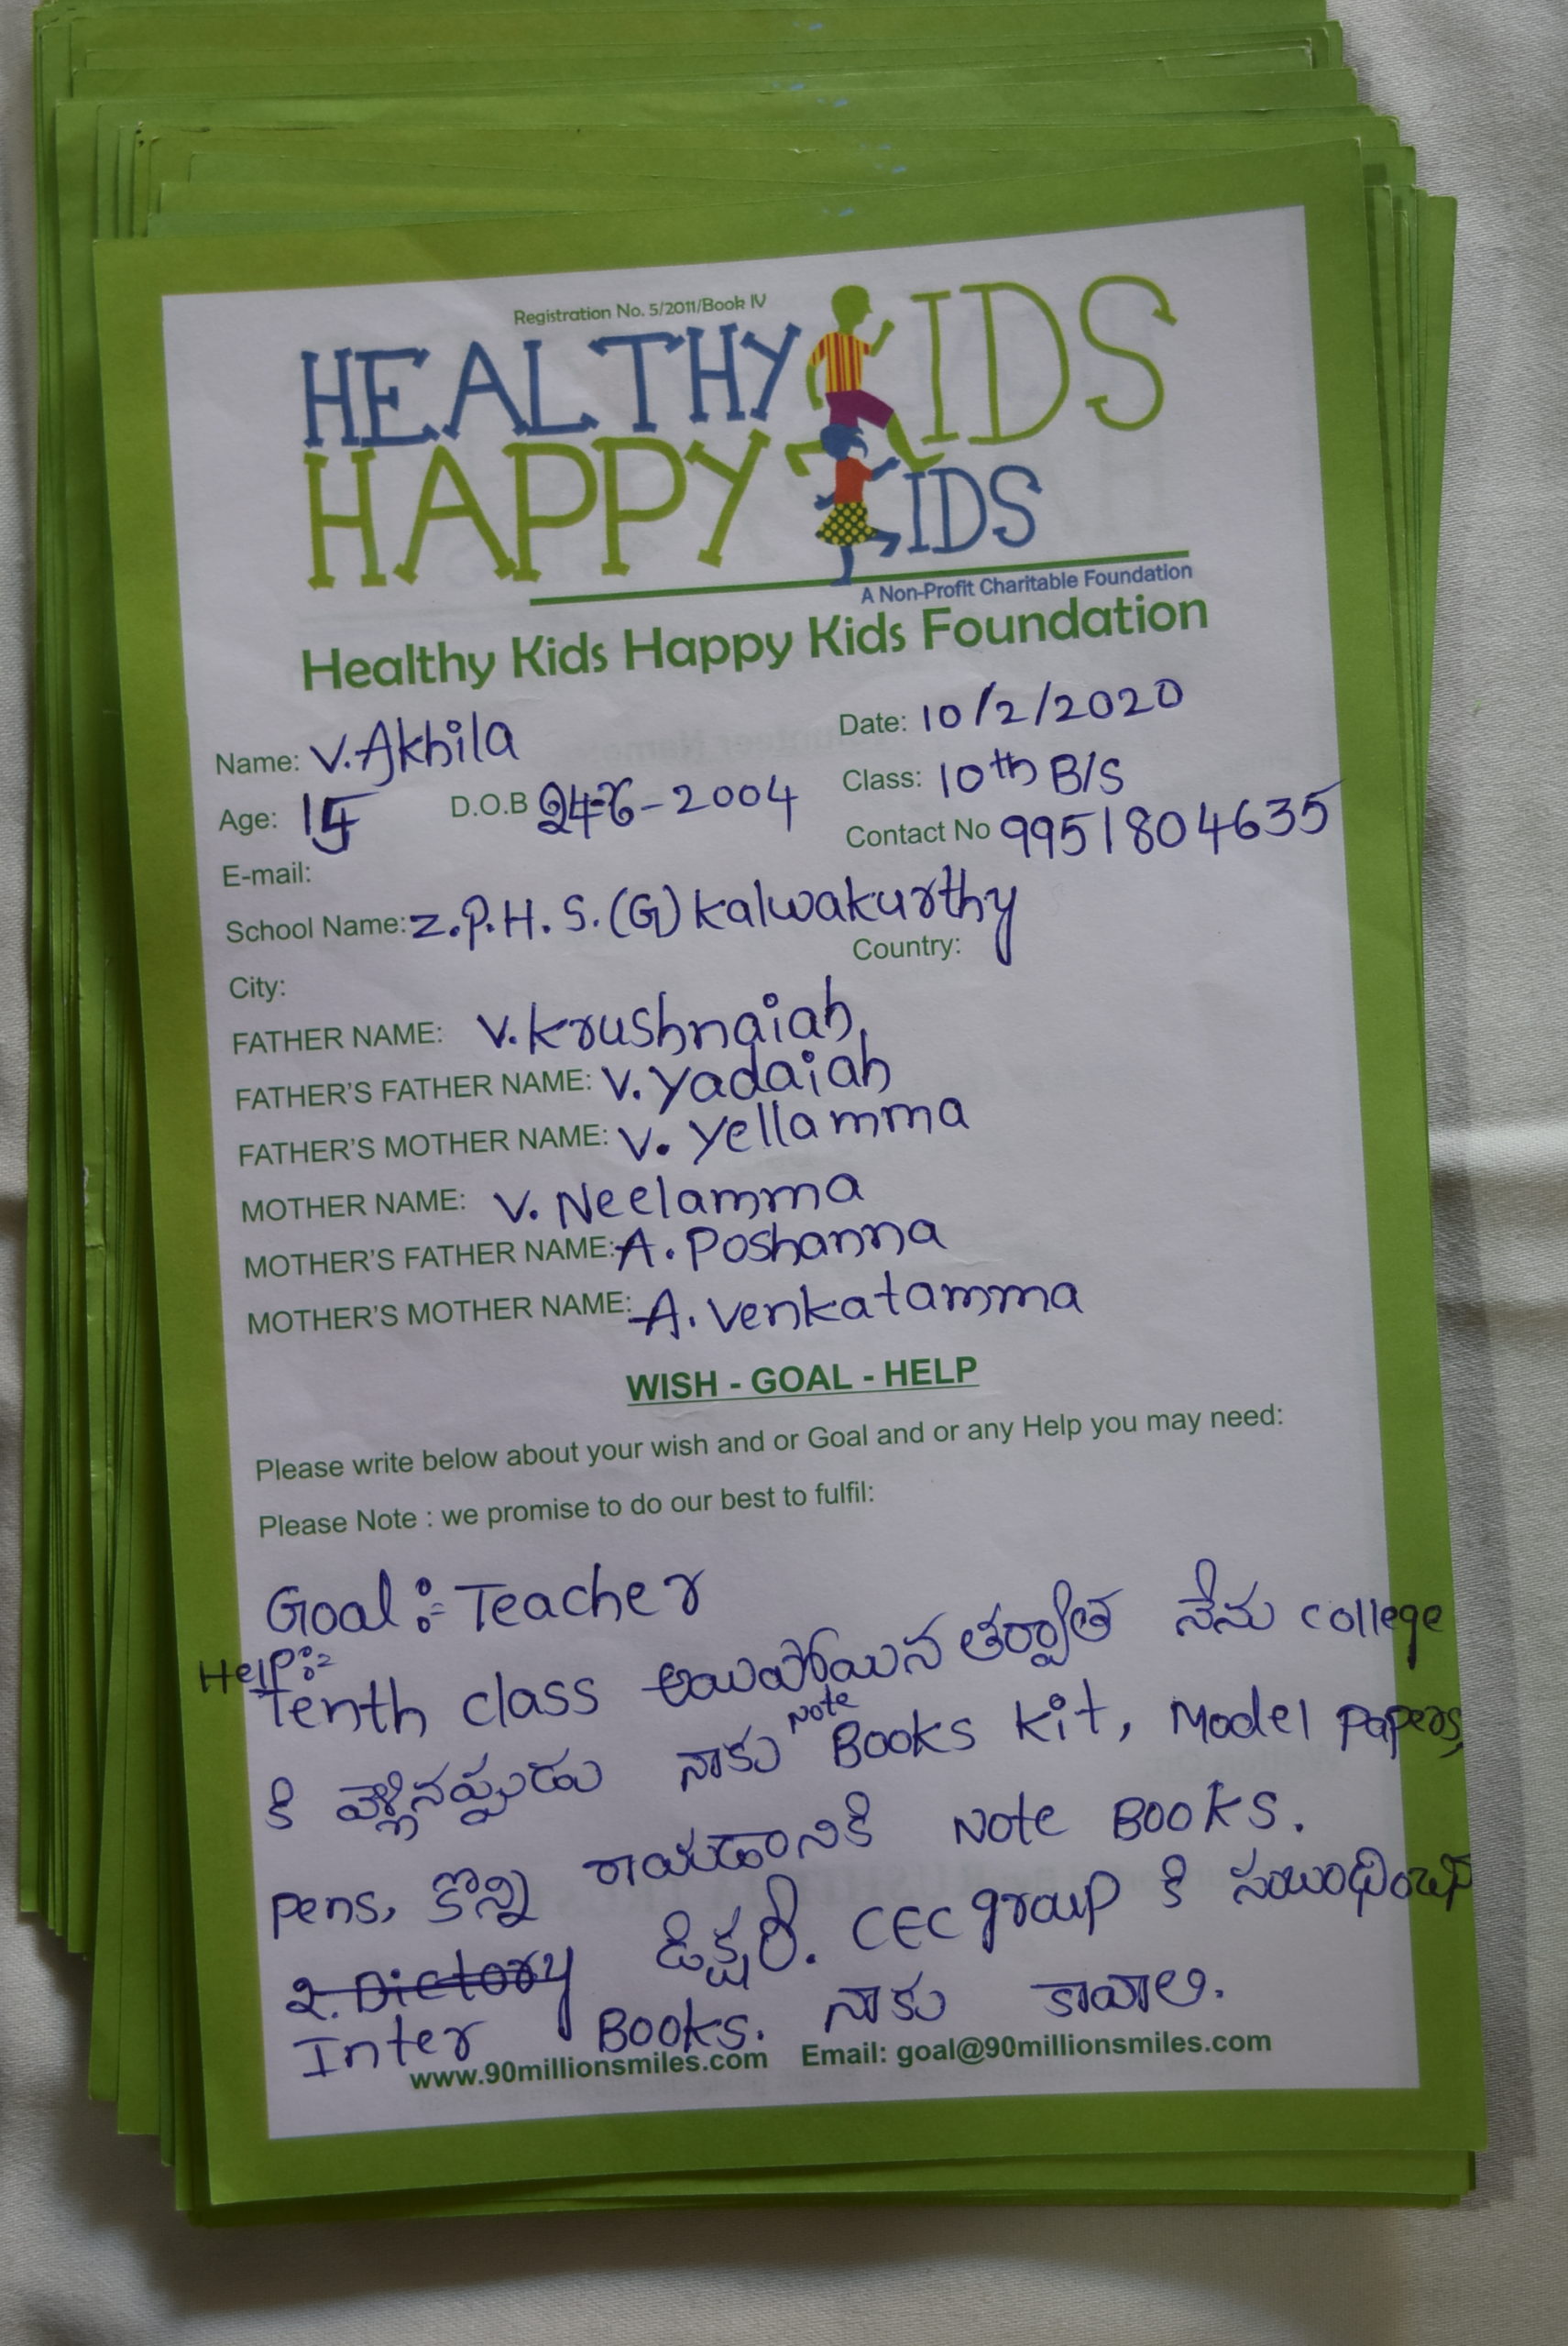 Registration No. 5/2011/Book IV
HEALTHY KIDS
HAPPY KIDS
A Non-Profit Charitable Foundation
Healthy Kids Happy Kids Foundation
Name: V.Akhila Date: 10/2/2020
Age: 15 D.O.B 24-6-2004 Class: 10th B/S
Contact No 9951804635
E-mail:
School Name: Z.P.H.S.(G) kalwakurthy
City: Country:
FATHER NAME: V.krushnaiah,
FATHER'S FATHER NAME: V.yadaiah
FATHER'S MOTHER NAME: V. yellamma
MOTHER NAME: V. Neelamma
MOTHER'S FATHER NAME: A. Poshanna
MOTHER'S MOTHER NAME: A. venkatamma
WISH - GOAL - HELP
Please write below about your wish and or Goal and or any Help you may need:
Please Note : we promise to do our best to fulfil:
Goal:- Teacher
Help:-
Tenth class అయిపోయిన తర్వాత నేను college
కి వెళ్లినప్పుడు నాకు Note Books kit, Model papers,
pens, కొన్ని రాయడానికి Note Books.
2. Dictory డిక్షరీ. CEC group కి సంబంధించిన
Inter Books. నాకు కావాలి.
www.90millionsmiles.com Email: goal@90millionsmiles.com